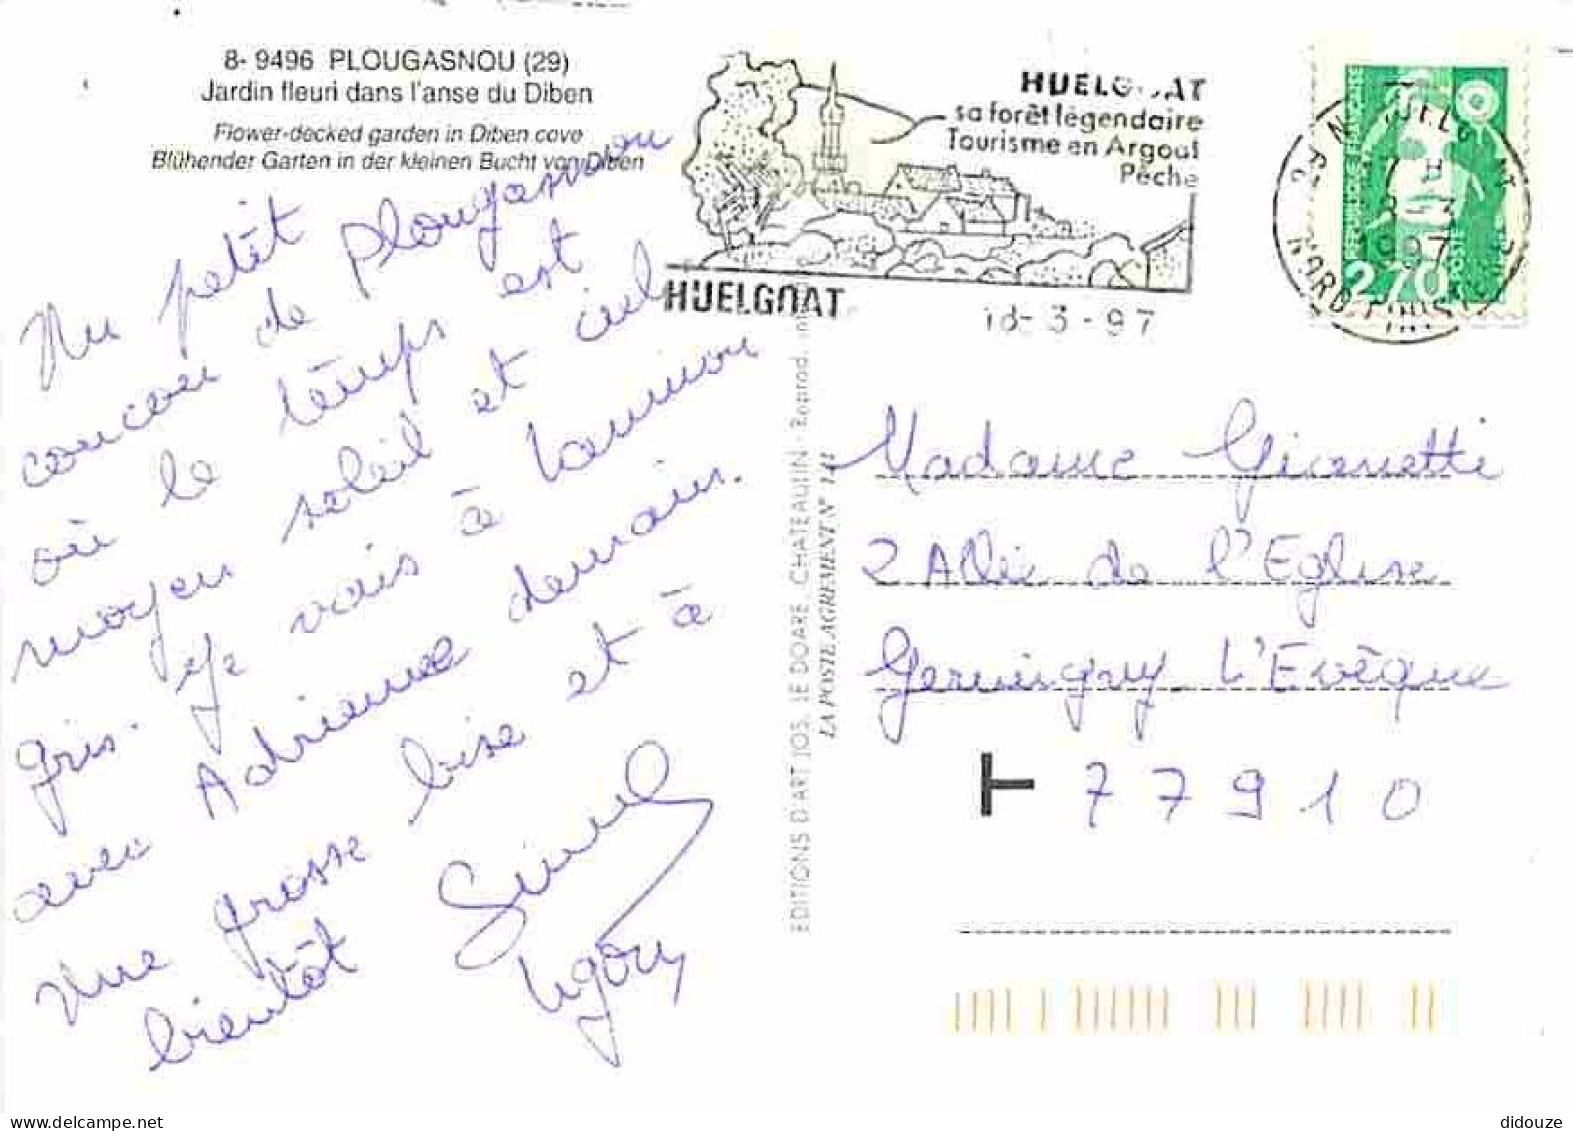 8- 9496 PLOUGASNOU (29)
Jardin fleuri dans l'anse du Diben
Flower-decked garden in Diben cove
Blühender Garten in der kleinen Bucht von Diben
Un petit
coucou de Plougasnou
où le temps est
moyen soleil et ciel
gris. Je vais à Lannion
avec Adrienne demain.
Une grosse bise et à
bientôt
EDITIONS D'ART JOS. LE DOARE, CHATEAULIN - Reprod. int
LA POSTE AGREMENT N° 141
HUELGOAT
sa forêt légendaire
Tourisme en Argoat
Pêche
HUELGOAT
18-3-97
REPUBLIQUE FRANÇAISE
2,70
LA POSTE
1997
Madame Gianetti
2 Allée de l'Eglise
Germigny L'Evêque
77910
didouze